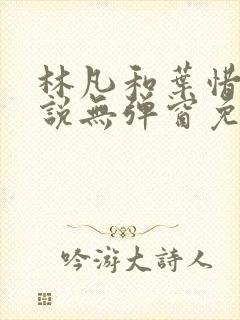 林凡和葉惜
說無彈窗免
吟游大詩人